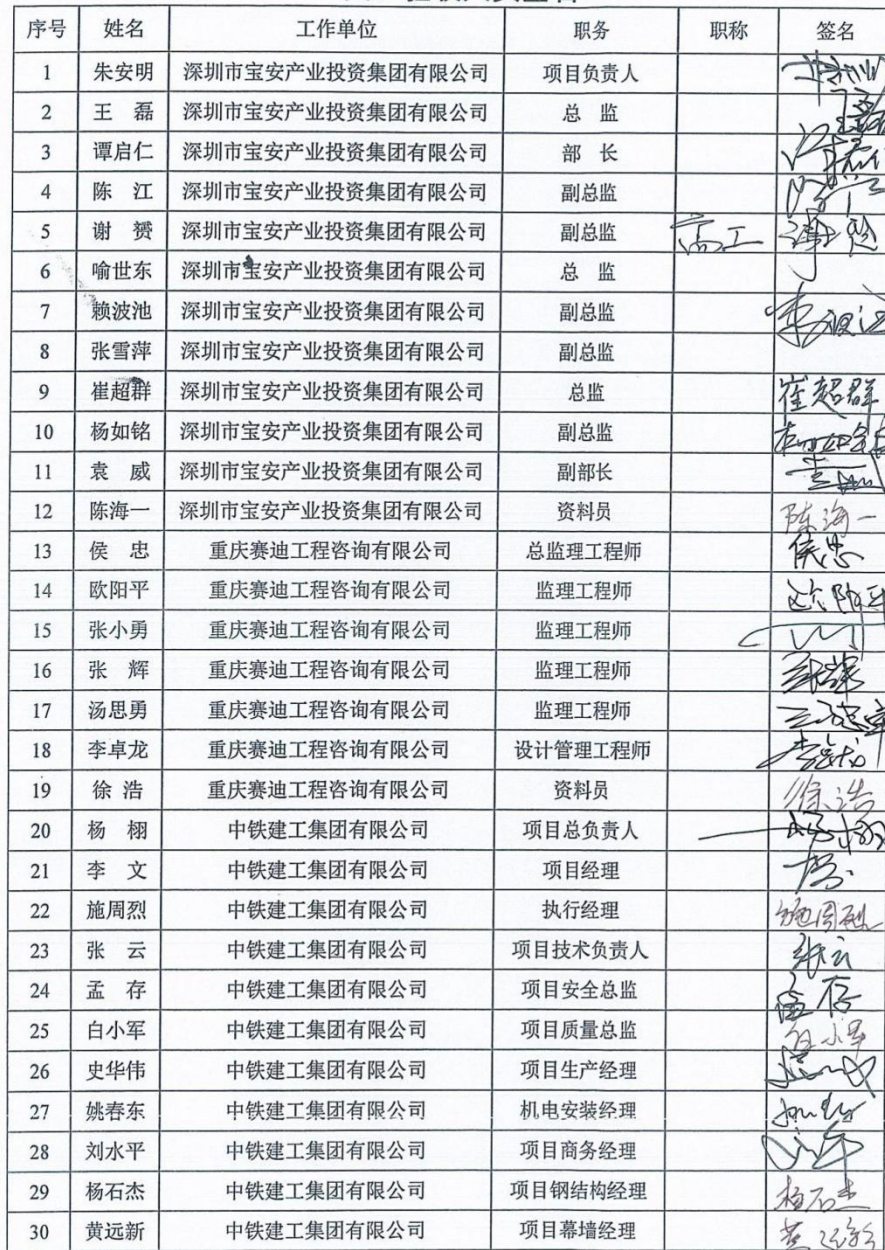 序号 姓名 工作单位 职务 职称 签名
1 朱安明 深圳市宝安产业投资集团有限公司 项目负责人
2 王 磊 深圳市宝安产业投资集团有限公司 总 监
3 谭启仁 深圳市宝安产业投资集团有限公司 部 长
4 陈 江 深圳市宝安产业投资集团有限公司 副总监
5 谢 赟 深圳市宝安产业投资集团有限公司 副总监 高工
6 喻世东 深圳市宝安产业投资集团有限公司 总 监
7 赖波池 深圳市宝安产业投资集团有限公司 副总监
8 张雪萍 深圳市宝安产业投资集团有限公司 副总监
9 崔超群 深圳市宝安产业投资集团有限公司 总监 崔超群
10 杨如铭 深圳市宝安产业投资集团有限公司 副总监
11 袁 威 深圳市宝安产业投资集团有限公司 副部长
12 陈海一 深圳市宝安产业投资集团有限公司 资料员 陈海一
13 侯 忠 重庆赛迪工程咨询有限公司 总监理工程师 侯忠
14 欧阳平 重庆赛迪工程咨询有限公司 监理工程师
15 张小勇 重庆赛迪工程咨询有限公司 监理工程师
16 张 辉 重庆赛迪工程咨询有限公司 监理工程师 张辉
17 汤思勇 重庆赛迪工程咨询有限公司 监理工程师
18 李卓龙 重庆赛迪工程咨询有限公司 设计管理工程师 李卓龙
19 徐 浩 重庆赛迪工程咨询有限公司 资料员 徐浩
20 杨 栩 中铁建工集团有限公司 项目总负责人 杨栩
21 李 文 中铁建工集团有限公司 项目经理
22 施周烈 中铁建工集团有限公司 执行经理 施周烈
23 张 云 中铁建工集团有限公司 项目技术负责人 张云
24 孟 存 中铁建工集团有限公司 项目安全总监 孟存
25 白小军 中铁建工集团有限公司 项目质量总监 白小军
26 史华伟 中铁建工集团有限公司 项目生产经理
27 姚春东 中铁建工集团有限公司 机电安装经理
28 刘水平 中铁建工集团有限公司 项目商务经理
29 杨石杰 中铁建工集团有限公司 项目钢结构经理 杨石杰
30 黄远新 中铁建工集团有限公司 项目幕墙经理 黄远新